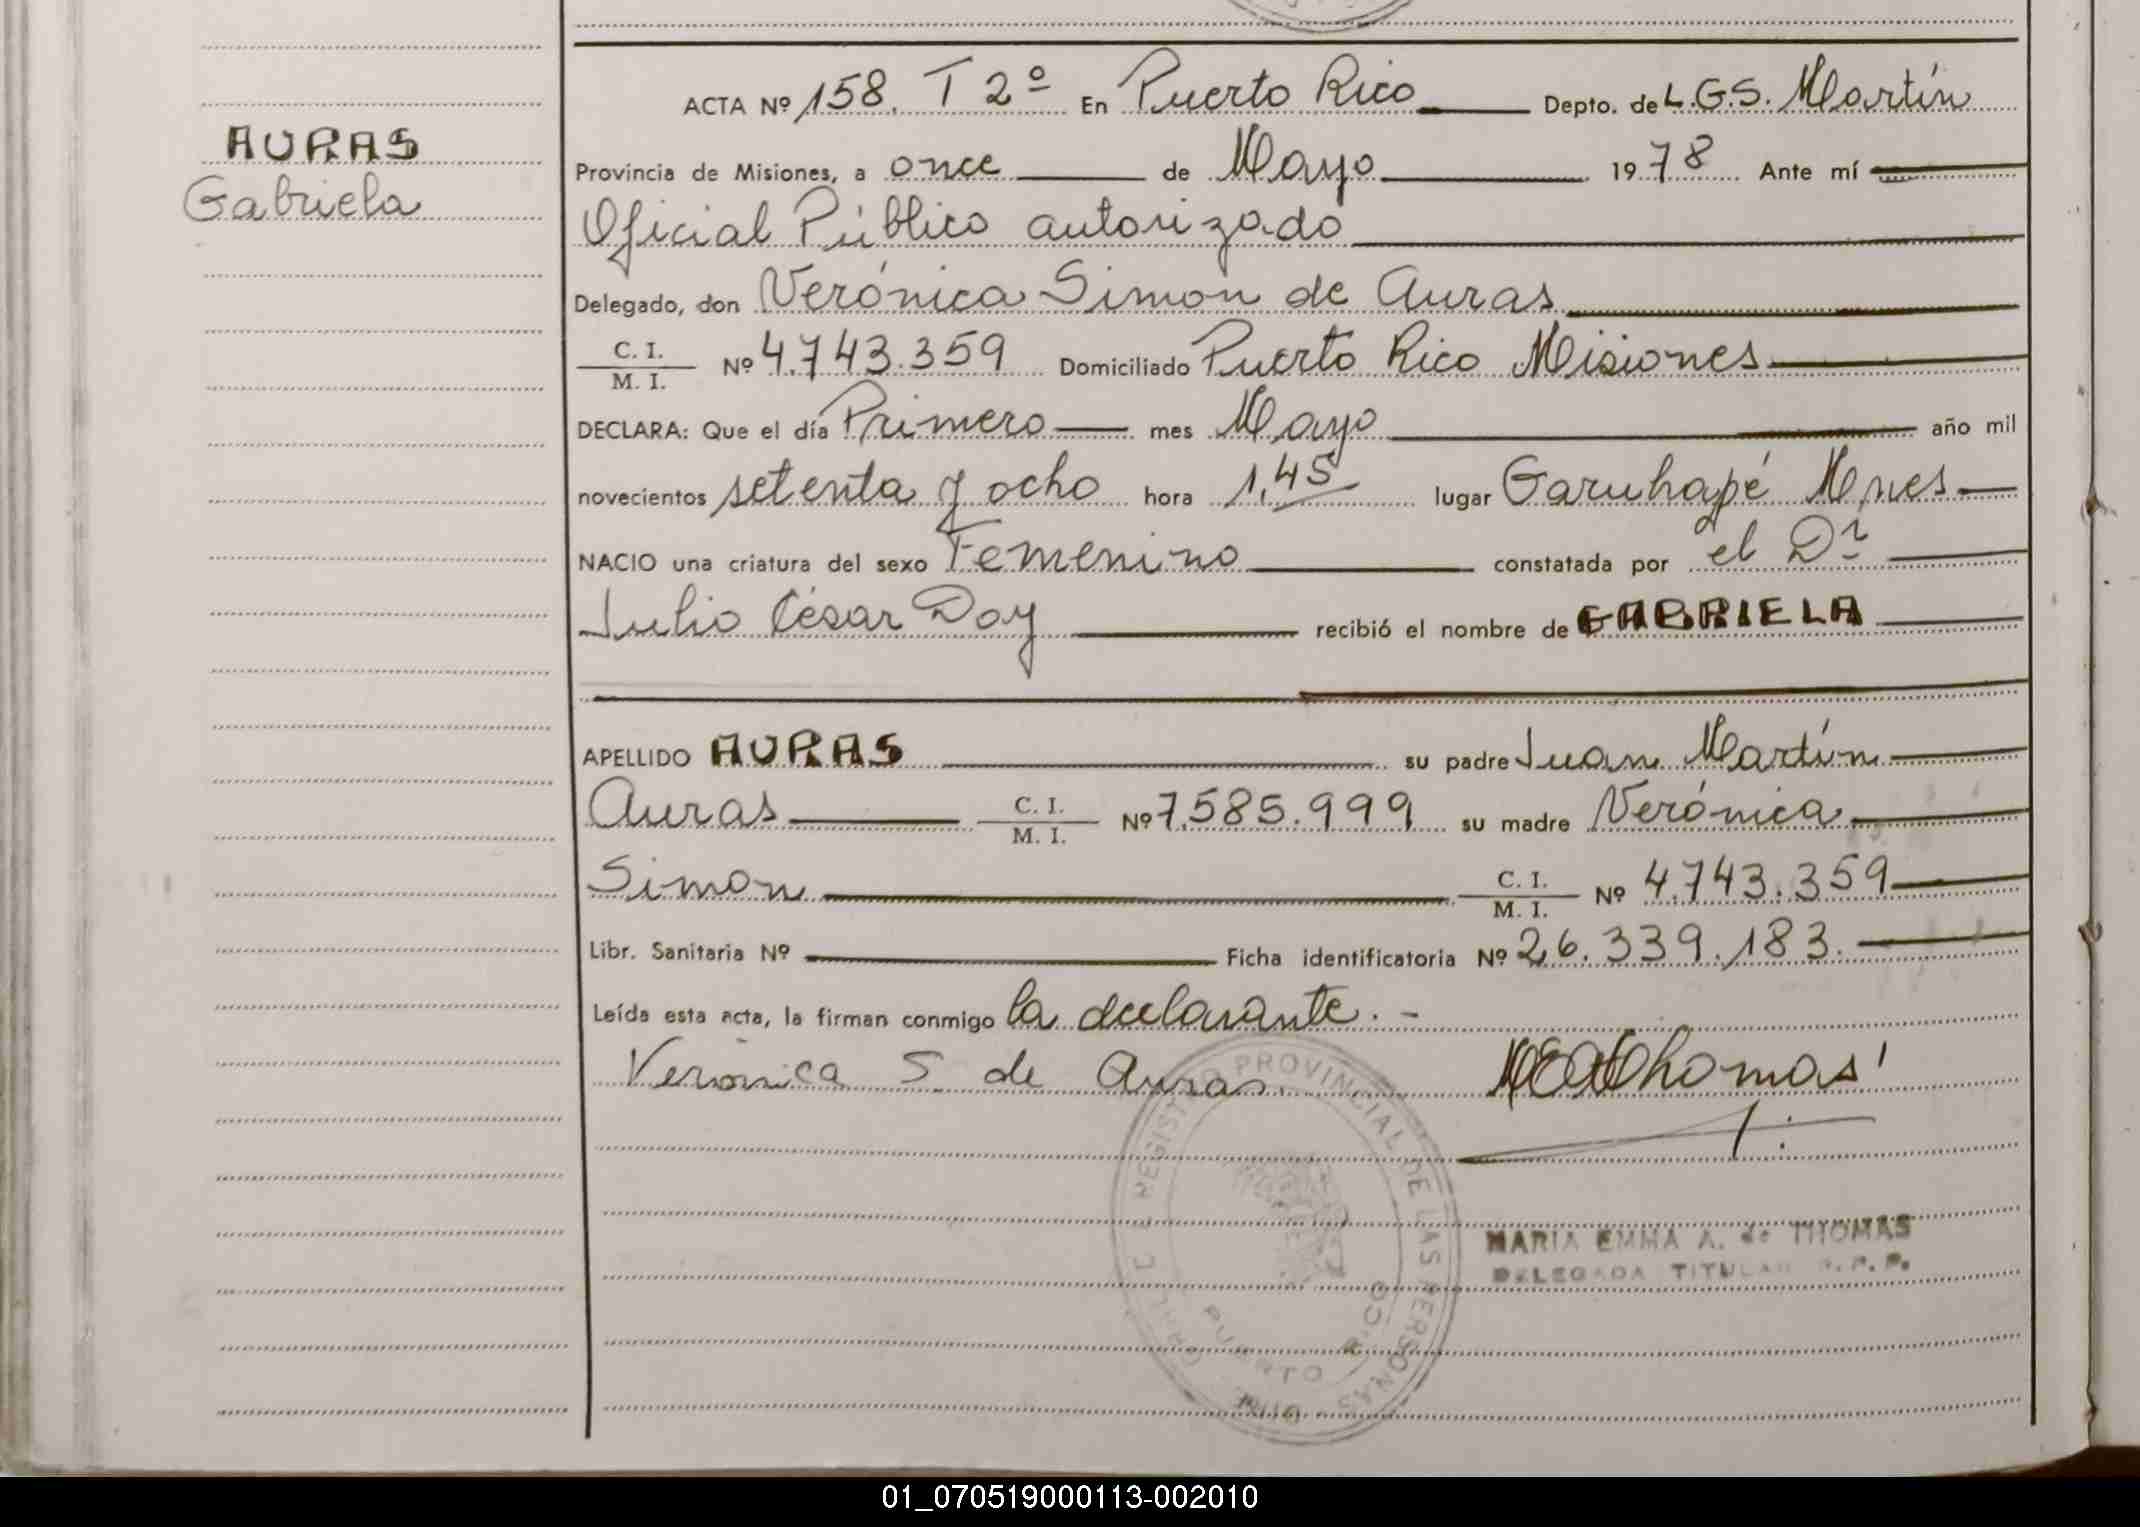 AURAS
Gabriela
ACTA Nº 158. T 2º En Puerto Rico Depto. de L.G.S. Martín
Provincia de Misiones, a once de Mayo 1978 Ante mí
Oficial Público autorizado
Delegado, don Verónica Simon de Auras
C. I.
M. I. Nº 4.743.359 Domiciliado Puerto Rico Misiones
DECLARA: Que el día Primero mes Mayo año mil
novecientos setenta y ocho hora 1,45 lugar Garuhapé Mnes
NACIO una criatura del sexo Femenino constatada por el Dr
Julio César Doy recibió el nombre de GABRIELA
APELLIDO AURAS su padre Juan Martín
Auras C. I. M. I. Nº 7.585.999 su madre Verónica
Simon C. I. M. I. Nº 4.743.359
Libr. Sanitaria Nº Ficha identificatoria Nº 26.339.183.
Leída esta acta, la firman conmigo la declarante. -
Verónica S. de Auras Thomas
REGISTRO PROVINCIAL DE LAS PERSONAS
PUERTO RICO
MARIA EMMA A. de THOMAS
DELEGADA TITULAR R. P. P.
01_070519000113-002010